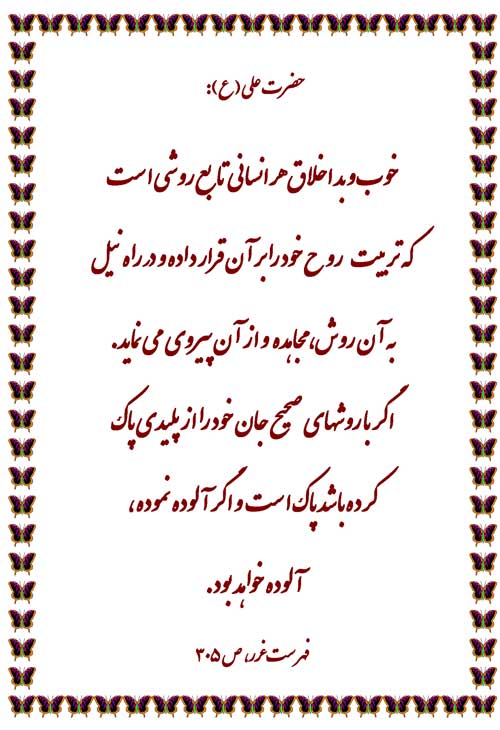 حضرت علی (ع):
خوب و بد اخلاق هر انسانی تابع روشی است
که تربیت روح خود را بر آن قرار داده و در راه نیل
به آن روش، مجاهده و از آن پیروی می نماید.
اگر با روشهای صحیح جان خود را از پلیدی پاک
کرده باشد پاک است و اگر آلوده نموده،
آلوده خواهد بود.
فهرست غرر، ص ۳۰۵